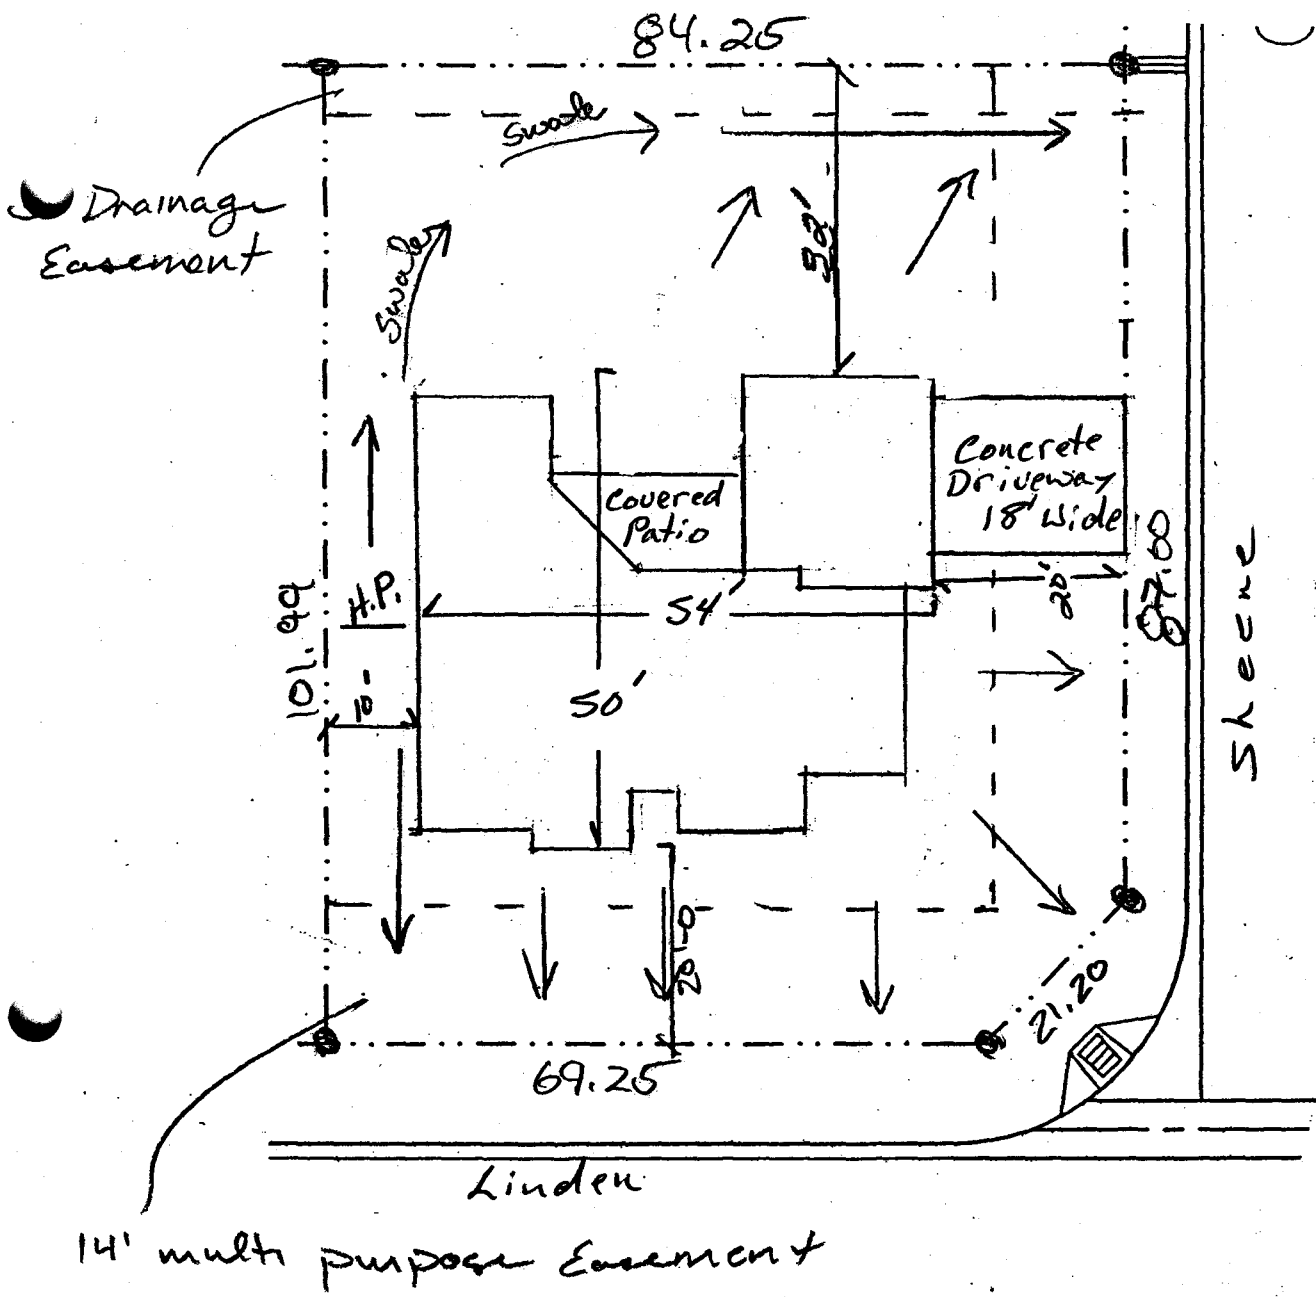 84.25
Swale
Drainage
Easement
Swale
32'
Concrete
Driveway
18' Wide
Covered
Patio
H.P.
54'
20'
87.00
101.99
10'
50'
Sheene
20'-0
21.20
69.25
Linden
14' multi purpose Easement